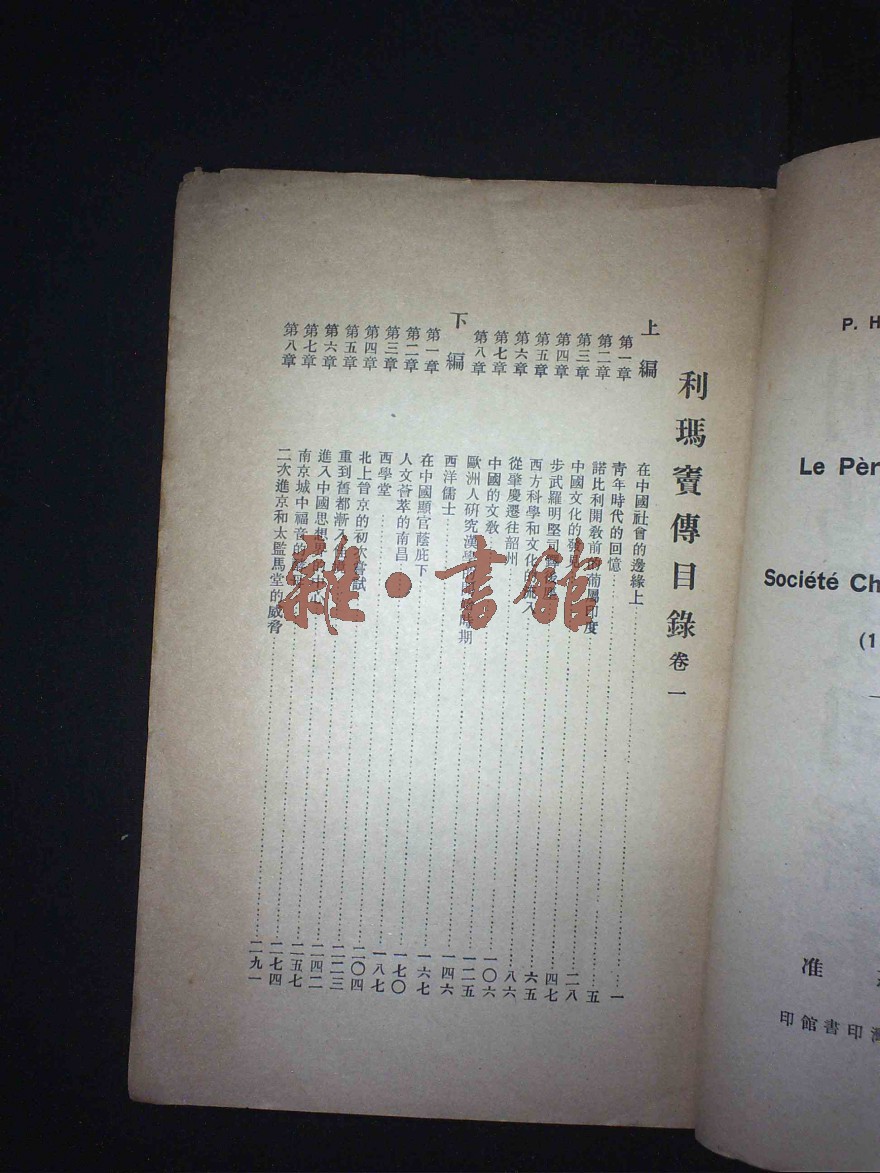 利瑪竇傳目錄 卷一
上編 在中國社會的邊緣上 一
第一章 青年時代的回憶 五
第二章 諾比利開教前的葡屬印度 二八
第三章 中國文化的 四七
第四章 步武羅明堅司鐸 六五
第五章 西方科學和文化 八六
第六章 從肇慶遷往韶州 一〇六
第七章 中國的文教 一二五
第八章 歐洲人研究漢學 時期 一四六
下編 西洋儒士 一六七
第一章 在中國顯官蔭庇下 一七〇
第二章 人文薈萃的南昌 一八七
第三章 西學堂 二〇四
第四章 北上晉京的初次嘗試 二二三
第五章 重到舊都漸入 二四二
第六章 進入中國思想界的中心 二五七
第七章 南京城中福音的 二七四
第八章 二次進京和太監馬堂的威脅 二九一
雜·書館
P. H
Le Pèr
Société Ch
(1
准
印館書印灣